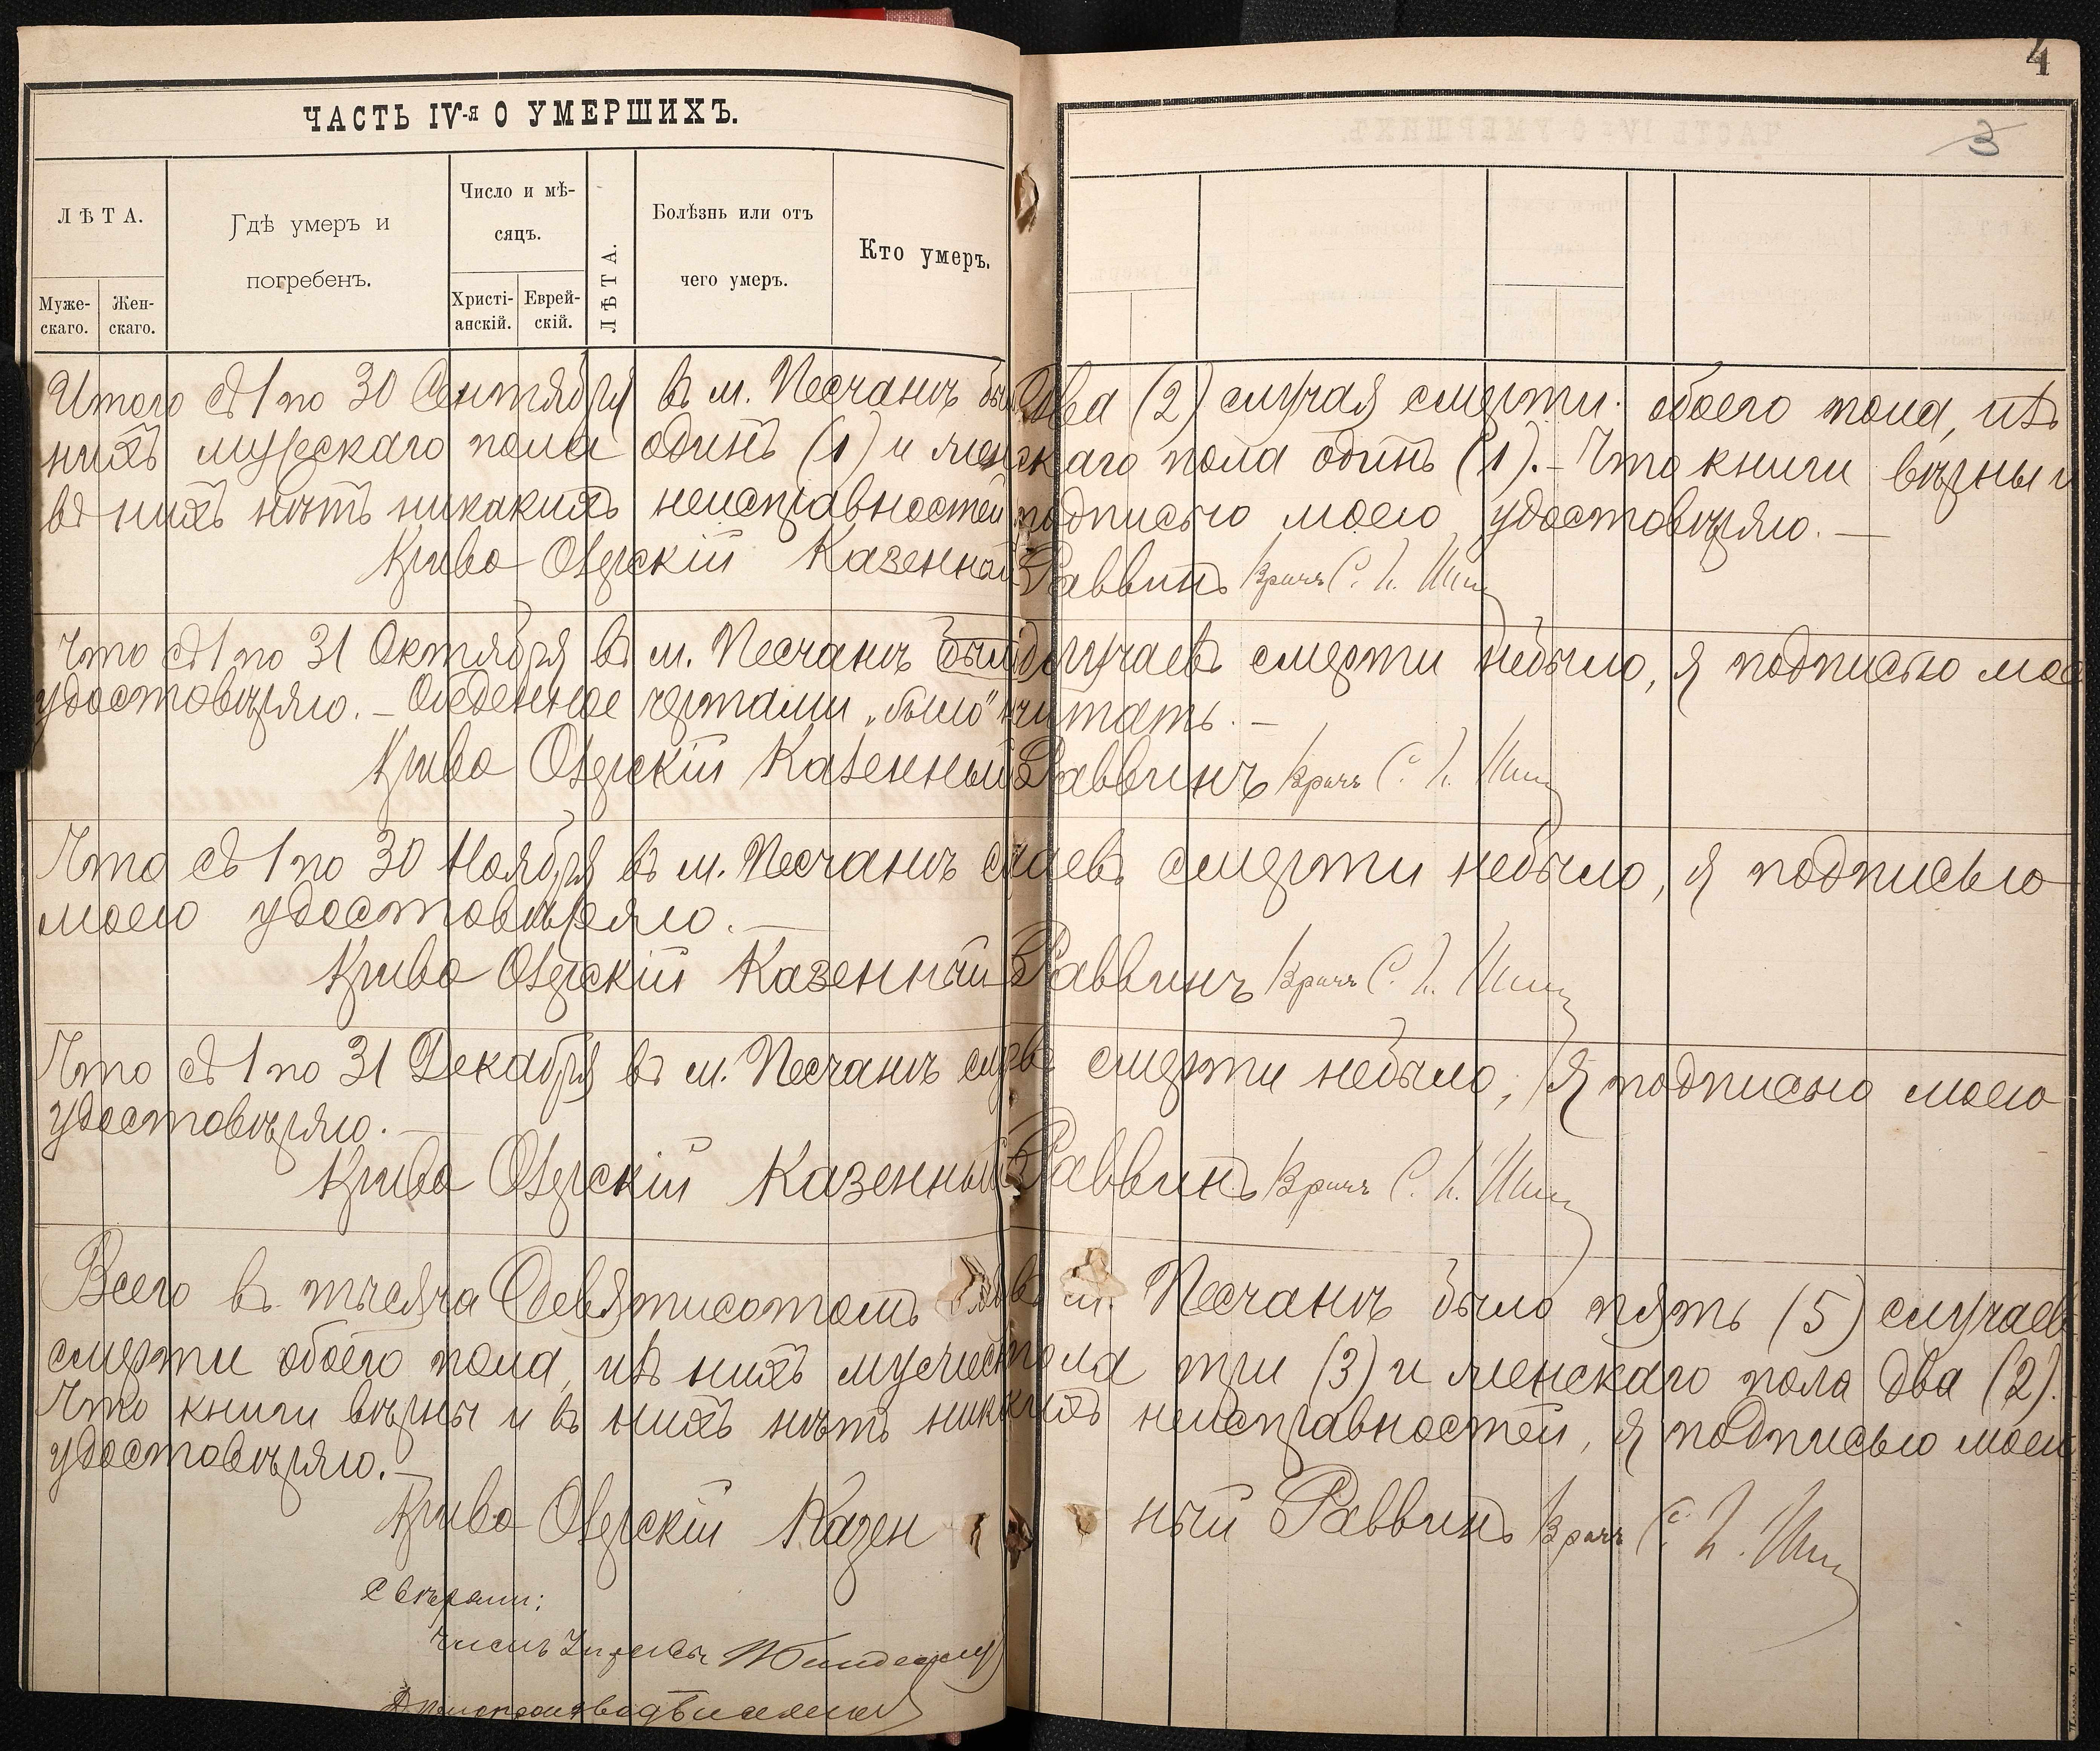 4
3
ЧАСТЬ IV-я О УМЕРШИХЪ.
ЛѢТА.
Муже-
скаго.
Жен-
скаго.
Гдѣ умеръ и
погребенъ.
Число и мѣ-
сяцъ.
Христі-
анскій.
Еврей-
скій.
ЛѢТА.
Болѣзнь или отъ
чего умеръ.
Кто умеръ.
Итого съ 1 по 30 Сентября въ м. Песчанѣ было два (2) случая смерти обоего пола, изъ
нихъ мужескаго пола одинъ (1) и женскаго пола одинъ (1). – Что книги вѣрны и
въ нихъ нѣтъ никакихъ неисправностей подписью моею удостовѣряю. –
Криво Озерскій Казенный Раввинъ Врачъ С. І.
Что съ 1 по 31 Октября въ м. Песчанѣ было случаевъ смерти небыло, я подписью моею
удостовѣряю. – Обведенное чертами „было" не читать. –
Криво Озерскій Казенный Раввинъ Врачъ С. І.
Что съ 1 по 30 Ноября въ м. Песчанѣ случаевъ смерти небыло, я подписью
моею удостовѣряю. –
Криво Озерскій Казенный Раввинъ Врачъ С. І.
Что съ 1 по 31 Декабря въ м. Песчанѣ случаевъ смерти небыло, я подписью моею
удостовѣряю. –
Криво Озерскій Казенный Раввинъ Врачъ С. І.
Всего въ тысяча Девятисотомъ въ м. Песчанѣ было пять (5) случаевъ
смерти обоего пола, изъ нихъ мужескаго пола три (3) и женскаго пола два (2).
Что книги вѣрны и въ нихъ нѣтъ никакихъ неисправностей, я подписью моею
удостовѣряю. –
Криво Озерскій Казенный Раввинъ Врачъ С. І.
Свѣряли:
Членъ Управы
Дѣлопроизводитель